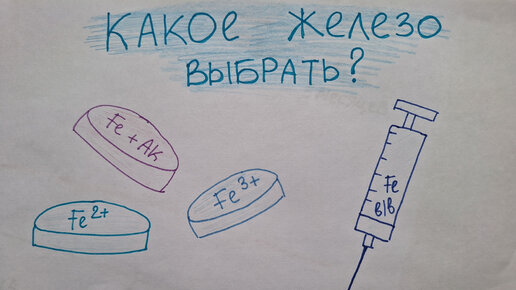 КАКОЕ ЖЕЛЕЗО
ВЫБРАТЬ?
Fe + АК
Fe2+
Fe3+
Fe
в/в